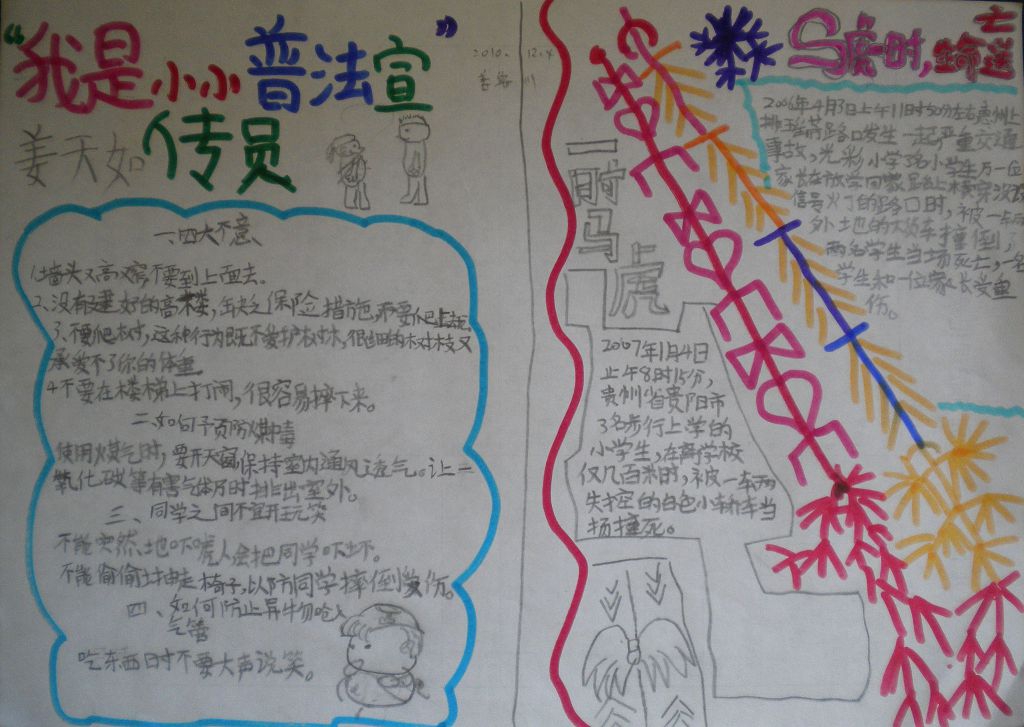 “我是小小普法宣”
传员
姜天如
2010. 12.4
一、四大不意、
1.墙头又高又窄不要到上面去。
2、没有建好的高楼,缺乏保险措施,不要爬上去
3、不要爬树,这种行为既不爱护树木,很细的树枝又
承受不了你的体重
4不要在楼梯上打闹,很容易摔下来。
二、如何预防煤毒
使用煤气时,要开窗保持室内通风透气。让二
氧化碳等有害气体及时排出室外。
三、同学之间不宜开玩笑
不能突然地吓唬人会把同学吓坏。
不能偷偷抽走椅子,以防同学摔倒受伤。
四、如何防止异物呛入
气管
吃东西时不要大声说笑。
马虎一时,生命送
亡
2006年4月3日上午11时50分左右惠州上
排瑶芳路口发生一起严重交通
事故,光彩小学3名小学生万一位
家长在放学回家马路上横穿没
信号灯的路口时,被一
外地的大货车撞倒,
两名学生当场死亡,一名
学生和一位家长受重
伤。
一时马虎
2007年1月4日
上午8时15分,
贵州省贵阳市
3名步行上学的
小学生,在离学校
仅几百米时,被一车辆
失控的白色小轿车当
场撞死。